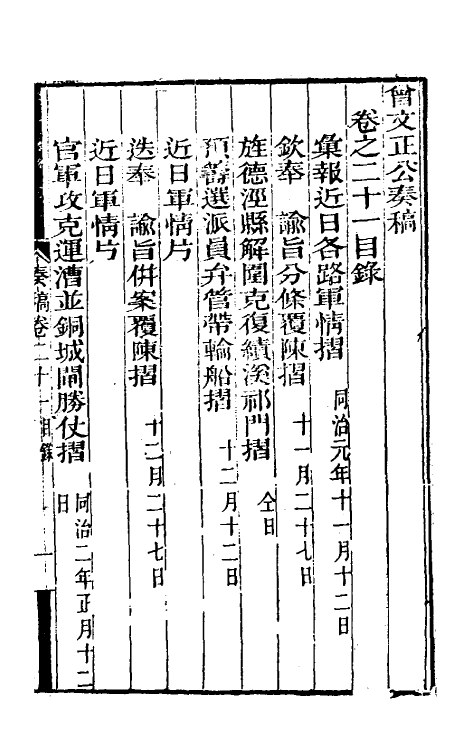 曾文正公奏稿
卷之二十一目錄
彙報近日各路軍情摺 同治元年十一月十二日
欽奉 諭旨分條覆陳摺 十一月二十七日
旌德涇縣解圍克復績溪祁門摺 仝日
預籌選派員弁管帶輪船摺 十二月十二日
近日軍情片
迭奉 諭旨併案覆陳摺 十二月二十七日
近日軍情片
官軍攻克運漕並銅城閘勝仗摺 同治二年正月十二日
奏稿卷二十一目錄 一